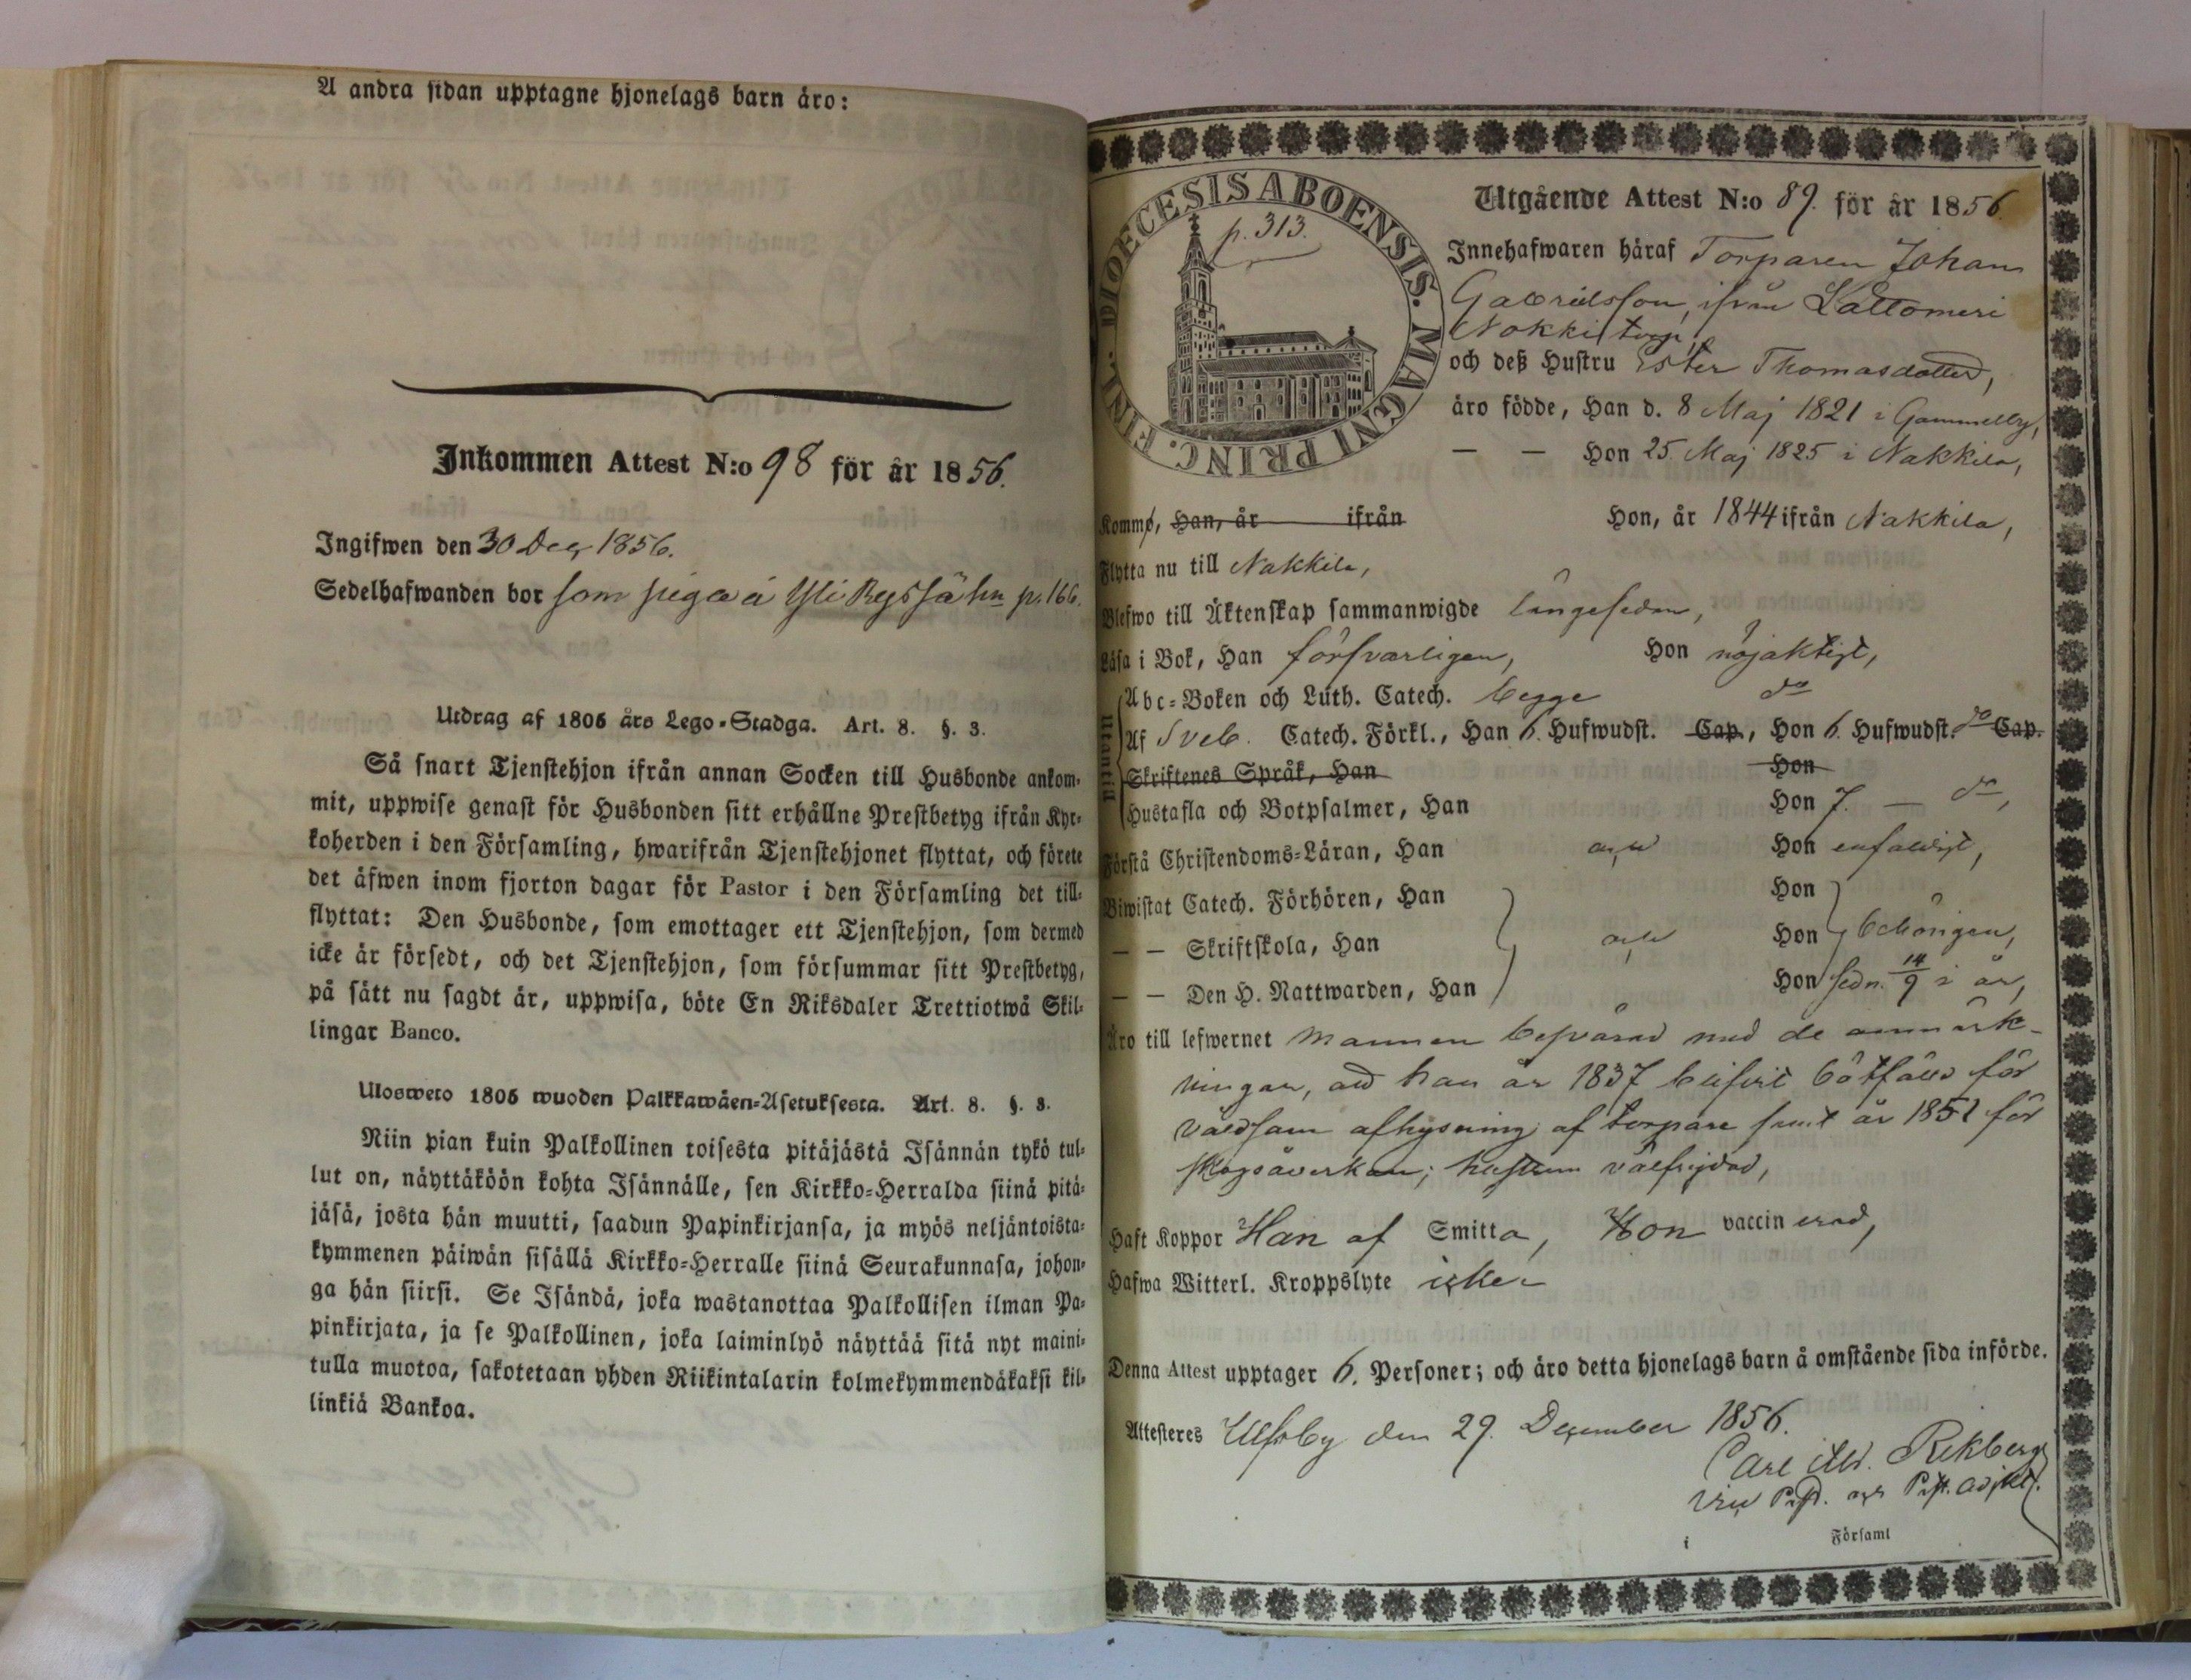 A andra sidan upptagne hjonelags barn äro:
Inkommen Attest N:o 98 för år 1856.
Ingifwen den 30 Dec 1856.
Sedelhafwanden bor som piga å Yli p. 166.
Utdrag af 1805 års Lego-Stadga. Art. 8. §. 3.
Så snart Tjenstehjon ifrån annan Socken till Husbonde ankom-
mit, uppwise genast för Husbonden sitt erhållne Prestbetyg ifrån Kyr-
koherden i den Församling, hwarifrån Tjenstehjonet flyttat, och förete
det äfwen inom fjorton dagar för Pastor i den Församling det till-
flyttat: Den Husbonde, som emottager ett Tjenstehjon, som dermed
icke är försedt, och det Tjenstehjon, som försummar sitt Prestbetyg,
på sätt nu sagdt är, uppwisa, böte En Riksdaler Trettiotwå Skil-
lingar Banco.
Ulosweto 1805 wuoden Palkkawäen-Asetuksesta. Art. 8. §. 3.
Niin pian kuin Palkollinen toisesta pitäjästä Isännän tykö tul-
lut on, näyttäköön kohta Isännälle, sen Kirkko-Herralda siinä pitä-
jäsä, josta hän muutti, saadun Papinkirjansa, ja myös neljäntoista-
kymmenen päiwän sisällä Kirkko-Herralle siinä Seurakunnasa, johon-
ga hän siirsi. Se Isändä, joka wastanottaa Palkollisen ilman Pa-
pinkirjata, ja se Palkollinen, joka laiminlyö näyttää sitä nyt maini-
tulla muotoa, sakotetaan yhden Riikintalarin kolmekymmendäkaksi kil-
linkiä Bankoa.
DIOECESIS ABOENSIS. MAGNI PRINC. FINL.
p. 313.
Utgående Attest N:o 89. för år 1856.
Innehafwaren häraf Torparen Johan
Gabrielsson, ifrån Lattomeri
Nokki torp,
och deß Hustru Ester Thomasdotter,
äro födde, Han d. 8 Maj 1821 i Gammelby,
— — Hon 25 Maj 1825 i Nakkila,
Kommo, Han, år ifrån Hon, år 1844 ifrån Nakkila,
Flytta nu till Nakkila,
Blefwo till Äktenskap sammanwigde längesedan,
Läsa i Bok, Han försvarligen, Hon nöjaktigt,
Utantill
Abc-Boken och Luth. Catech. begge do
Af Sveb. Catech. Förkl., Han 6. Hufwudst. Cap., Hon 6. Hufwudst. do Cap.
Skriftenes Språk, Han Hon
Hustafla och Botpsalmer, Han Hon 7. — do,
Förstå Christendoms-Läran, Han och Hon enfaldigt,
Biwistat Catech. Förhören, Han Hon
— — Skriftskola, Han och Hon behörigen,
— — Den H. Nattwarden, Han Hon sedn. 14/9 i år,
Äro till lefwernet mannen beprisad med de anmärk-
ningar, att han år 1837 blifvit bötfäld för
våldsam afhysning af torpare samt år 1851 för
skogsåverkan; hustrun välfrejdad,
Haft Koppor Han af Smitta, Hon vaccinerad,
Hafwa Witterl. Kroppslyte icke
Denna Attest upptager 6. Personer; och äro detta hjonelags barn å omstående sida införde.
Attesteres Ulfsby den 29. December 1856.
Carl Rekberg
Vice Past. och Past. adjkt.
i Församl